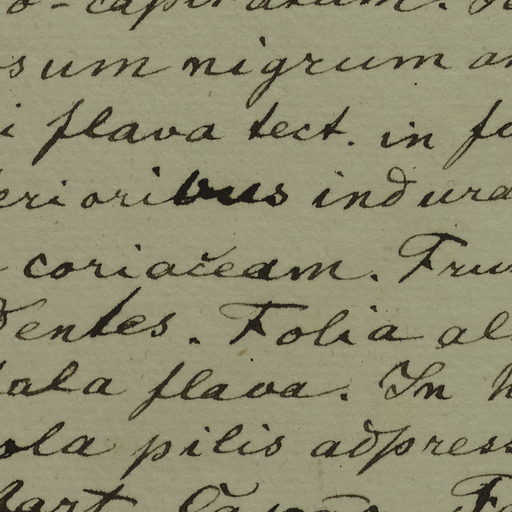 o-capitatum.
sum nigrum an
i flava tect. in fo
erioribus indura
coriaceam. Fru
dentes. Folia al
ala flava. In h
ola pilis adpress
part